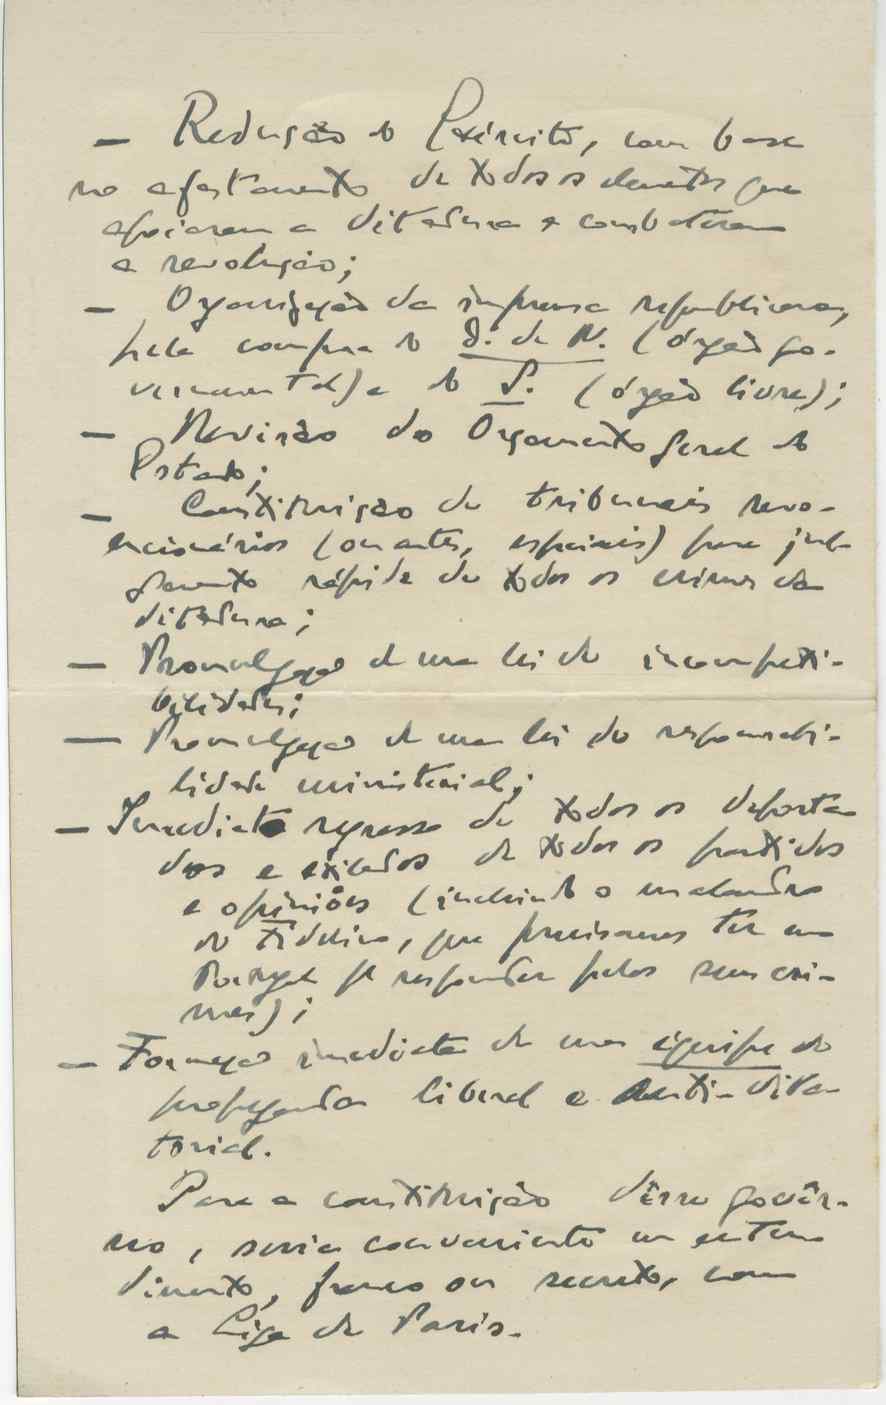 — Redução do Exército, com base
no afastamento de todos os elementos que
apoiaram a ditadura e combateram
a revolução;
— Organização da imprensa republicana,
pela compra do D. de N. (órgão go-
vernamental) e do S. (órgão livre);
— Revisão do Orçamento Geral do
Estado;
— Constituição de tribunais revo-
lucionários (ou antes, especiais) para jul-
gamento rápido de todos os crimes da
ditadura;
— Promulgação de uma lei de incompati-
bilidades;
— Promulgação de uma lei de responsabi-
lidade ministerial;
— Imediato regresso de todos os deporta-
dos e exilados de todos os partidos
e opiniões (incluindo o malandro
do Fidelino, que precisamos ter em
Portugal pª responder pelos seus cri-
mes);
— Formação imediata de uma équipe de
propaganda liberal e anti-dita-
torial.
Para a constituição dêsse govêr-
no, seria conveniente um enten-
dimento, franco ou secreto, com
a Liga de Paris.